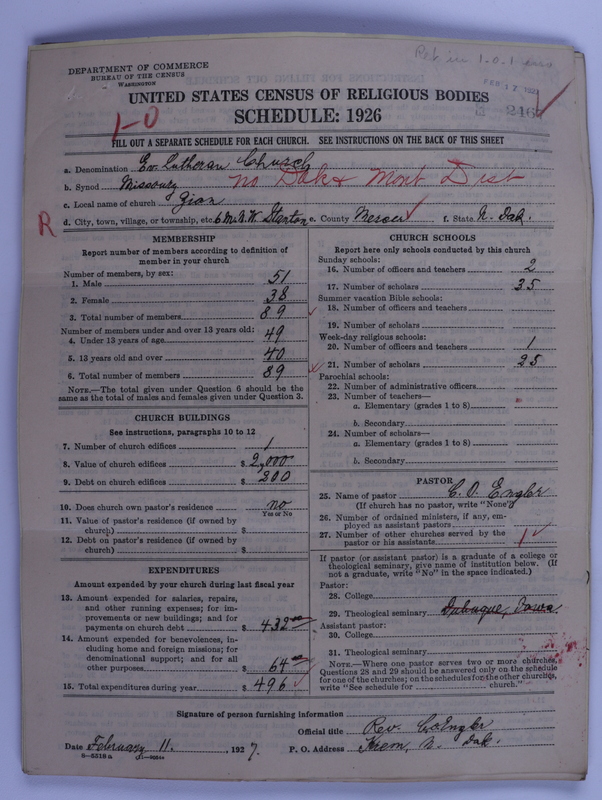 Ret in 1-0-1
DEPARTMENT OF COMMERCE
BUREAU OF THE CENSUS
WASHINGTON
FEB 12 192
UNITED STATES CENSUS OF RELIGIOUS BODIES
SCHEDULE: 1926
1-0
FILL OUT A SEPARATE SCHEDULE FOR EACH CHURCH. SEE INSTRUCTIONS ON THE BACK OF THIS SHEET
a. Denomination Ev. Lutheran Church
b. Synod Missoury No Dak & Mont Dist
c. Local name of church Zion
R
d. City, town, village, or township, etc. 6 M. N. W. e. County Mercer f. State N. Dak.
MEMBERSHIP
Report number of members according to definition of
member in your church
Number of members, by sex:
1. Male 51
2. Female 38
3. Total number of members 89
Number of members under and over 13 years old:
4. Under 13 years of age 49
5. 13 years old and over 40
6. Total number of members 89
NOTE.—The total given under Question 6 should be the
same as the total of males and females given under Question 3.
CHURCH BUILDINGS
See instructions, paragraphs 10 to 12
7. Number of church edifices 1
8. Value of church edifices $ 2,000
9. Debt on church edifices $ 200
10. Does church own pastor's residence no
Yes or No
11. Value of pastor's residence (if owned by
church) $
12. Debt on pastor's residence (if owned by
church) $
EXPENDITURES
Amount expended by your church during last fiscal year
13. Amount expended for salaries, repairs,
and other running expenses; for im-
provements or new buildings; and for
payments on church debt $ 432 00
14. Amount expended for benevolences, in-
cluding home and foreign missions; for
denominational support; and for all
other purposes $ 64 00
15. Total expenditures during year $ 496
CHURCH SCHOOLS
Report here only schools conducted by this church
Sunday schools:
16. Number of officers and teachers 2
17. Number of scholars 35
Summer vacation Bible schools:
18. Number of officers and teachers
19. Number of scholars
Week-day religious schools:
20. Number of officers and teachers 1
21. Number of scholars 25
Parochial schools:
22. Number of administrative officers
23. Number of teachers—
a. Elementary (grades 1 to 8)
b. Secondary
24. Number of scholars—
a. Elementary (grades 1 to 8)
b. Secondary
PASTOR
25. Name of pastor C. O. Engler
(If church has no pastor, write "None")
26. Number of ordained ministers, if any, em-
ployed as assistant pastors
27. Number of other churches served by the
pastor or his assistants 1
If pastor (or assistant pastor) is a graduate of a college or
theological seminary, give name of institution below. (If
not a graduate, write "No" in the space indicated.)
Pastor:
28. College
29. Theological seminary Dubuque, Iowa
Assistant pastor:
30. College
31. Theological seminary
NOTE.—Where one pastor serves two or more churches,
Questions 28 and 29 should be answered only on the schedule
for one of the churches; on the schedules for the other churches,
write "See schedule for church."
Signature of person furnishing information
Official title Rev. C. O. Engler
Date February 11. , 1927. P. O. Address Krem, N. Dak.
8-5318 a